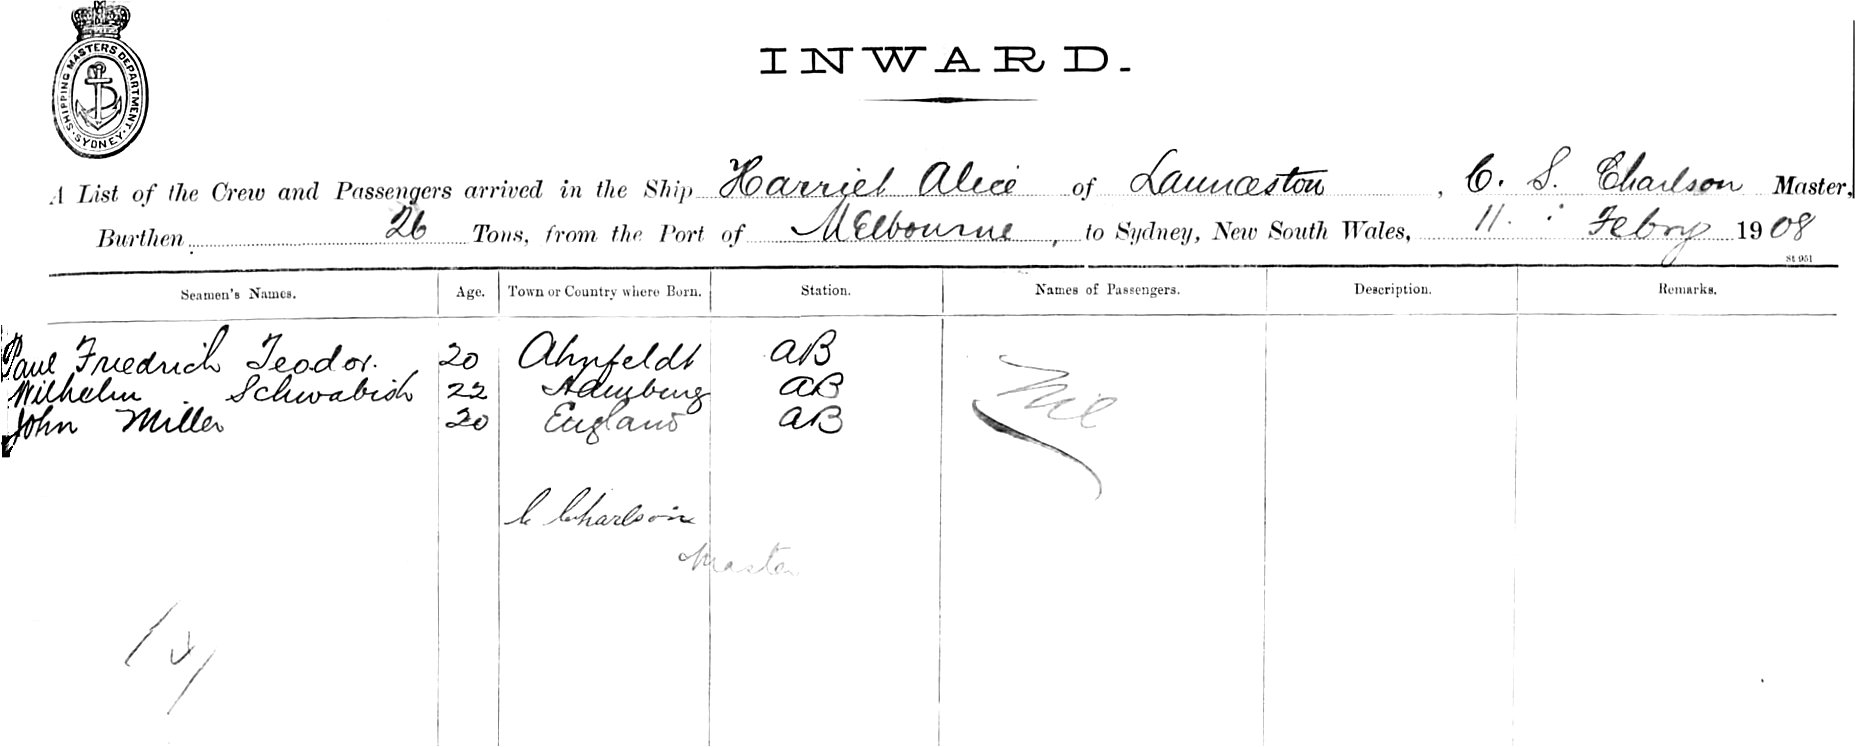 SHIPPING MASTERS DEPARTMENT SYDNEY
INWARD.
A List of the Crew and Passengers arrived in the Ship Harriet Alice of Launceston, C. S. Charlson Master,
Burthen 26 Tons, from the Port of Melbourne, to Sydney, New South Wales, 11. Febry 1908
St 951
Seamen's Names. Age. Town or Country where Born. Station. Names of Passengers. Description. Remarks.
Paul Friedrich Teodor. 20 Ahnfeldt AB Nil
Wilhelm Schwabish 22 Hamburg AB
John Miller 20 England AB
C Charlson
Master